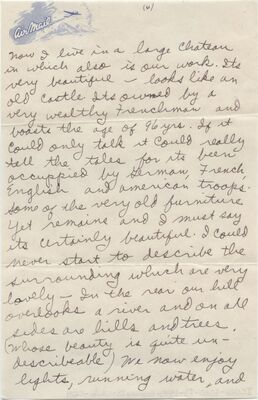 (6)
Air Mail
Now I live in a large Chateau
in which also is our work. Its
very beautiful – looks like an
old castle Its owned by a
very wealthy Frenchman and
boasts the age of 96 yrs. If it
could only talk it could really
tell the tales for its been
occuppied by German, French,
English and american troops.
Some of the very old furniture
yet remains and I must say
its certainly beautiful. I could
never start to describe the
surrounding which are very
lovely – In the rear our hill
overlooks a river and on all
sides are hills and trees.
(Whose beauty is quite un-
describeable) We now enjoy
lights, running water, and